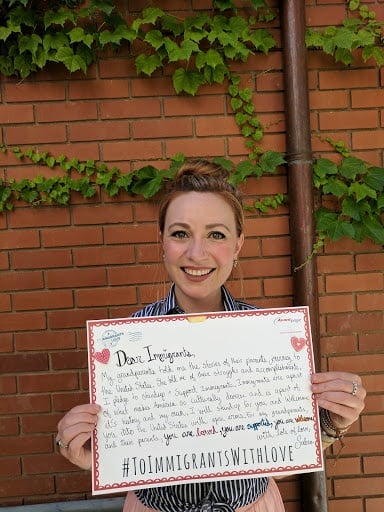 Dear Immigrants,
My grandparents told me the stories of their parents journey to
the United States. She told me of their struggle and accomplishments.
I pledge to Standup & Support Immigrants. Immigrants are
what makes America so culturally diverse and a part of
it's history and my own. I will Standup for you and Welcome
you into the United States with open arms for my grandparents
and their parents. you are loved, you are supported, you are welcome
with lots of love,
Sabrina
#TOIMMIGRANTSWITHLOVE